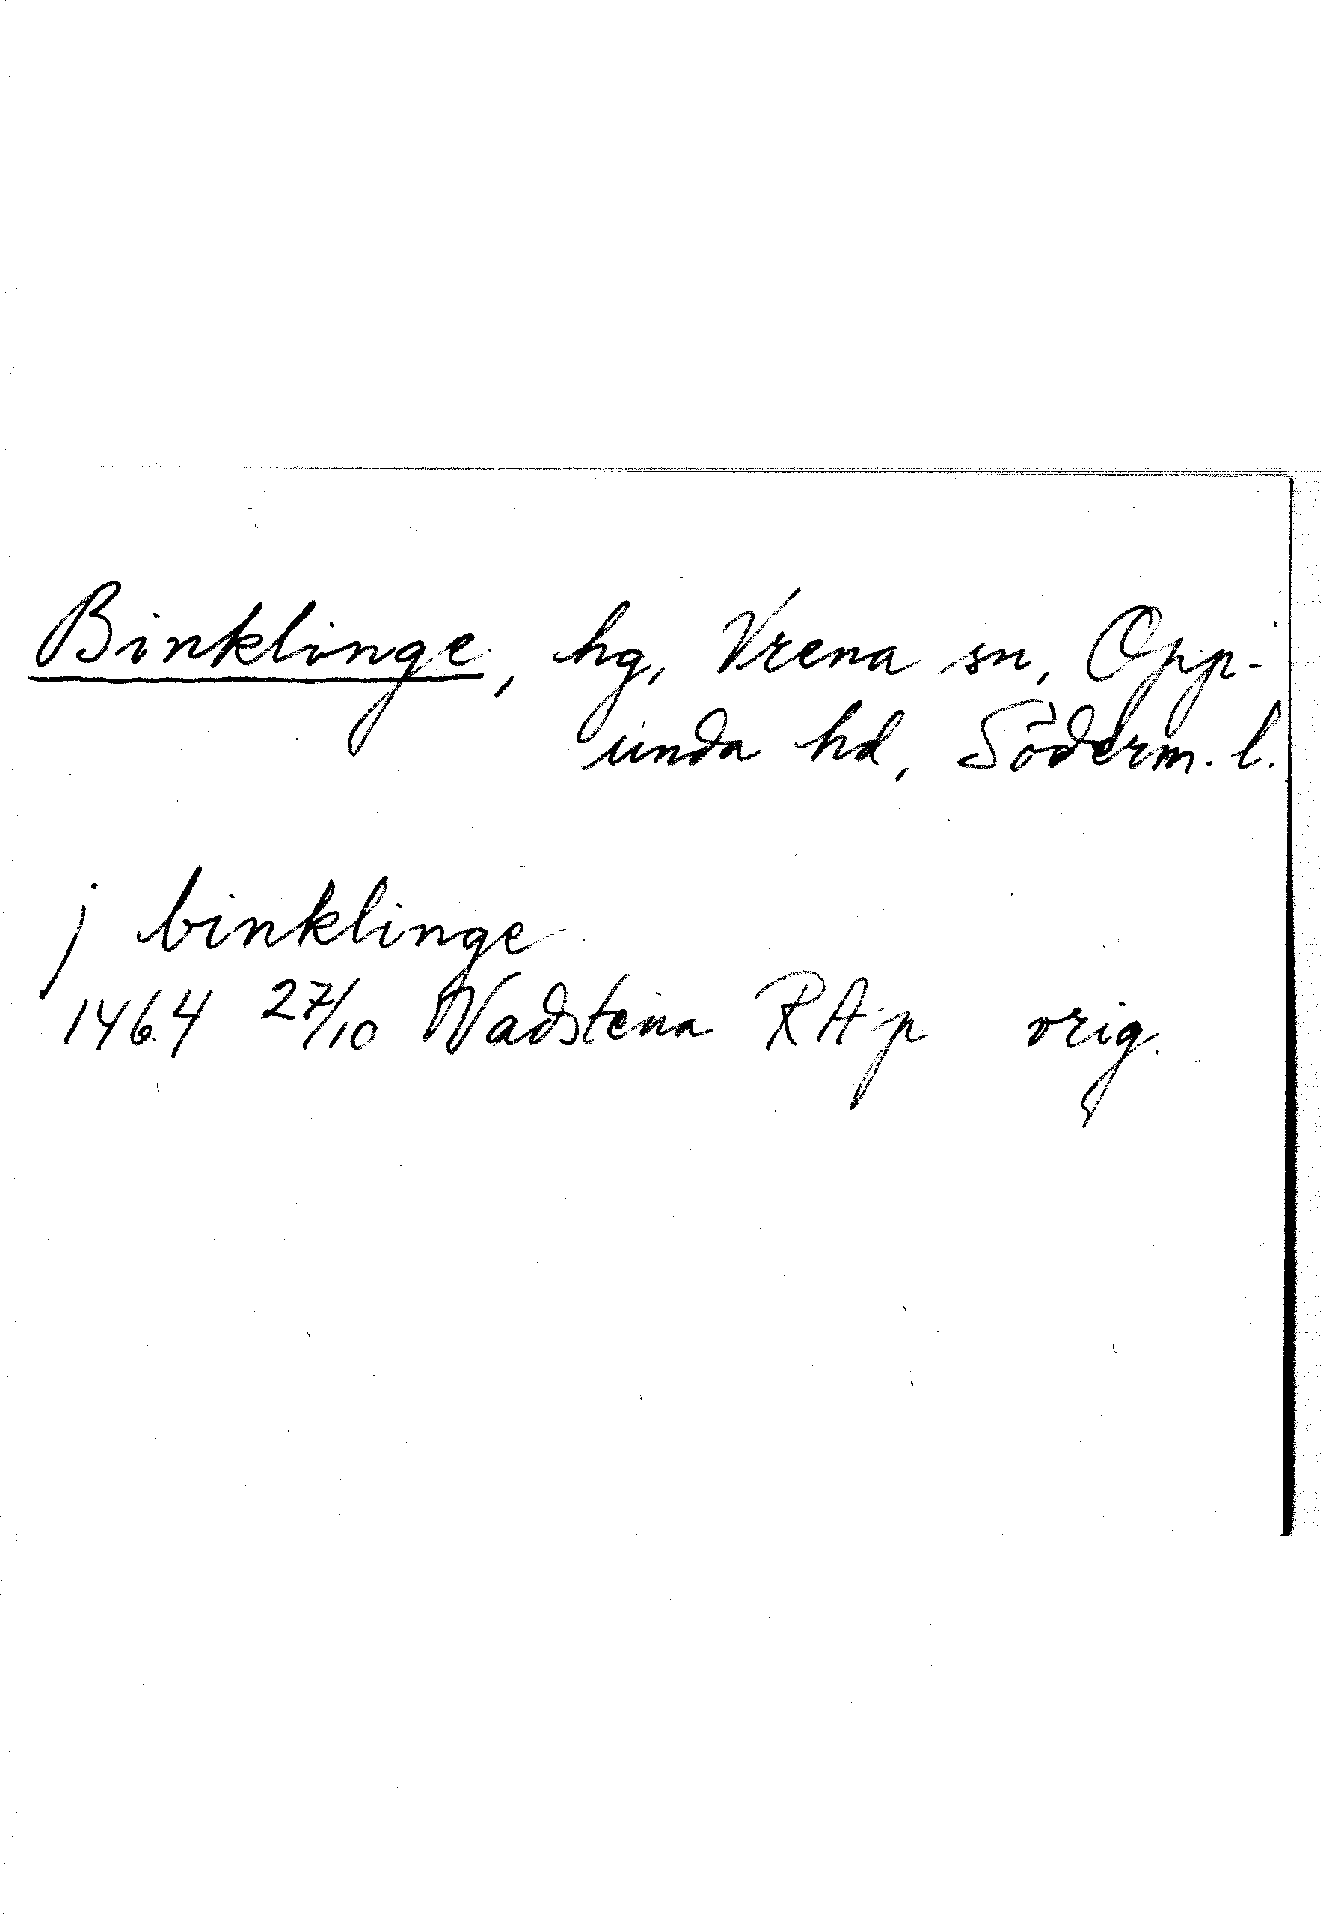 Binklinge, hg, Vrena sn, Opp-
unda hd, Söderm. l.
j binklinge
1464 27/10 Wadstena RAp orig.